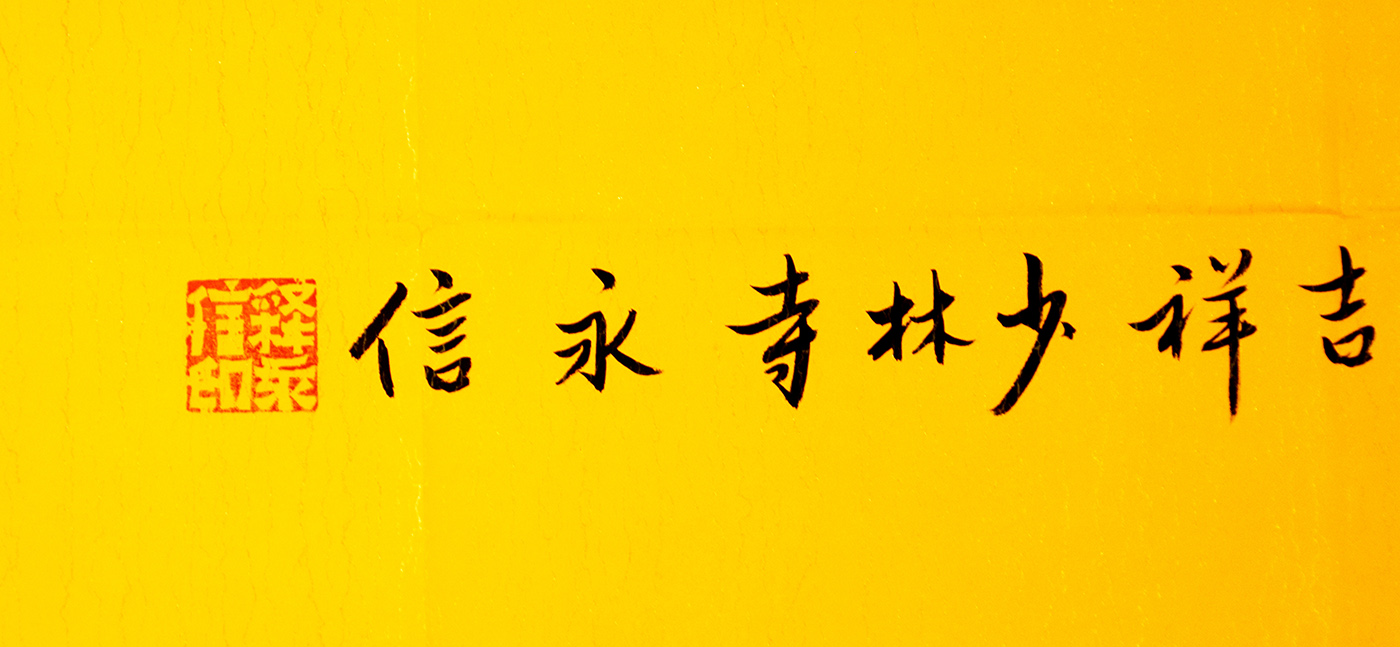 吉祥少林寺永信
释永信印